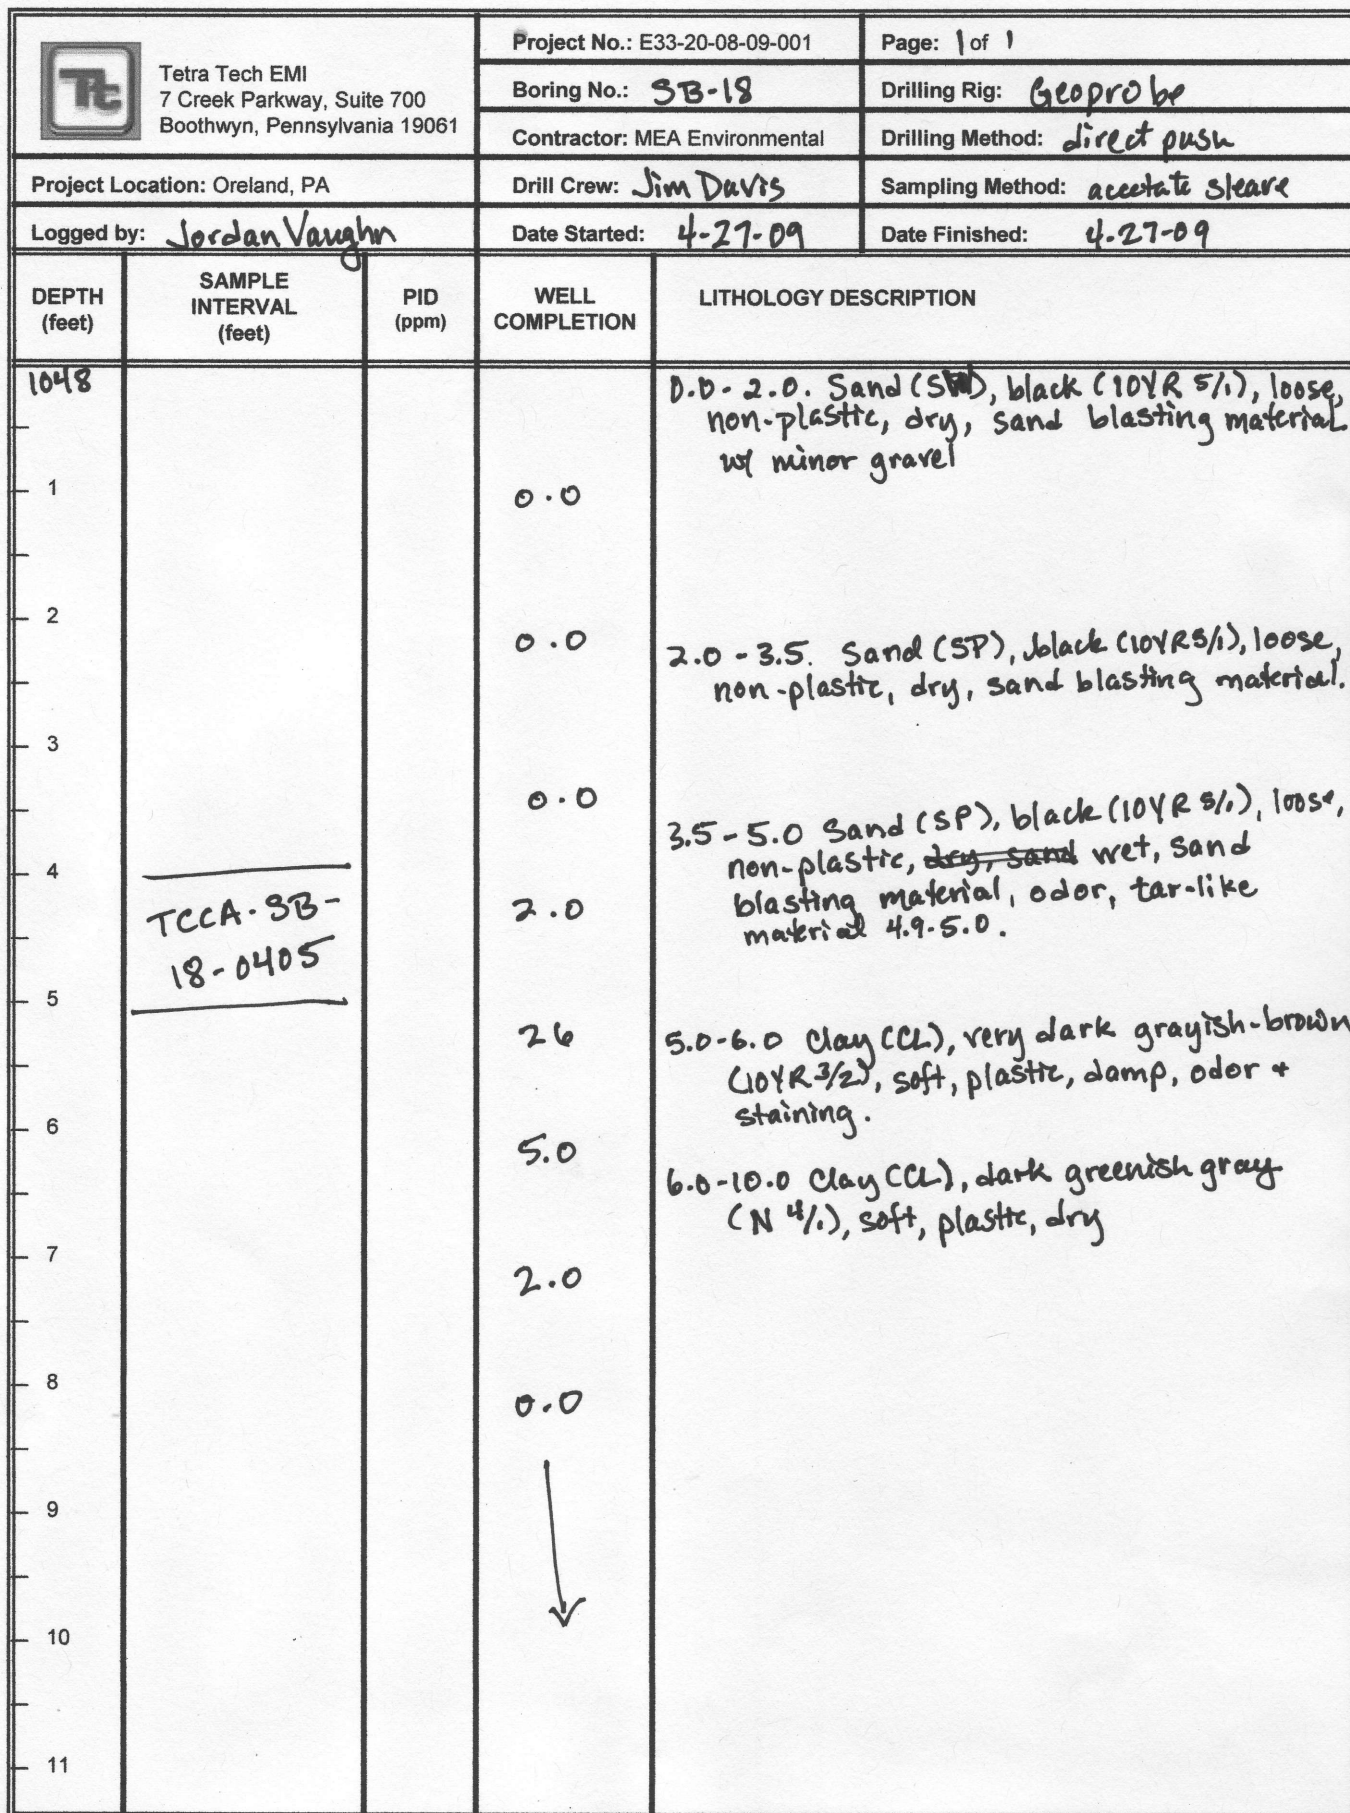 Tt
Tetra Tech EMI
7 Creek Parkway, Suite 700
Boothwyn, Pennsylvania 19061
Project No.: E33-20-08-09-001
Page: 1 of 1
Boring No.: SB-18
Drilling Rig: Geoprobe
Contractor: MEA Environmental
Drilling Method: direct push
Project Location: Oreland, PA
Drill Crew: Jim Davis
Sampling Method: acetate sleave
Logged by: Jordan Vaughn
Date Started: 4-27-09
Date Finished: 4-27-09
DEPTH
(feet)
SAMPLE
INTERVAL
(feet)
PID
(ppm)
WELL
COMPLETION
LITHOLOGY DESCRIPTION
1048
0.0-2.0. Sand (SW), black (10YR 5/1), loose,
non-plastic, dry, sand blasting material
w/ minor gravel
1
0.0
2
0.0
2.0-3.5. Sand (SP), black (10YR5/1), loose,
non-plastic, dry, sand blasting material.
3
0.0
3.5-5.0 Sand (SP), black (10YR 5/1), loose,
non-plastic, dry, sand wet, sand
blasting material, odor, tar-like
material 4.9-5.0.
4
TCCA-SB-
18-0405
2.0
5
26
5.0-6.0 Clay (CL), very dark grayish-brown
(10YR 3/2), soft, plastic, damp, odor +
staining.
6
5.0
6.0-10.0 Clay (CL), dark greenish gray
(N 4/1), soft, plastic, dry
7
2.0
8
0.0
9
10
11